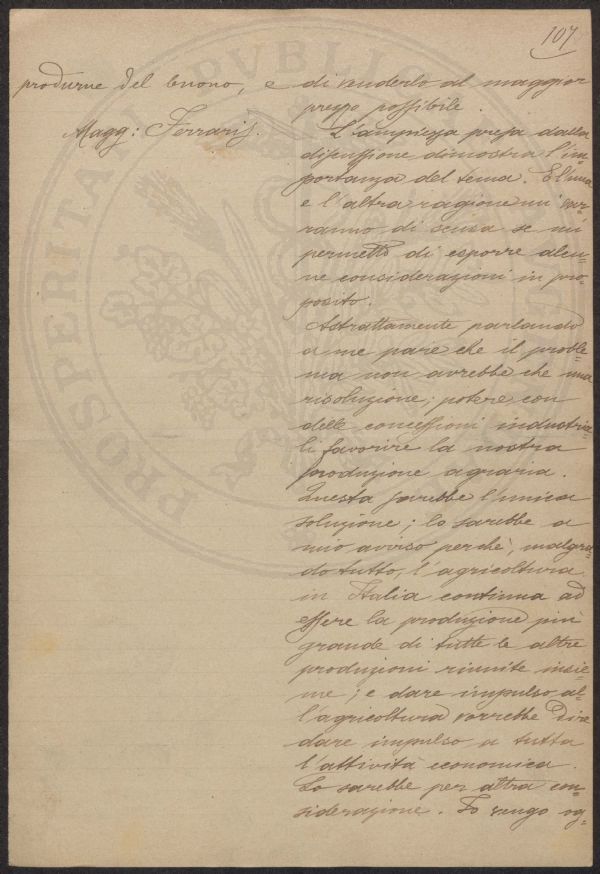 107
produrne del buono, e di venderlo al maggior
prezzo possibile.
Magg: Ferraris. L'ampiezza presa dalla
discussione dimostra l'im=
portanza del tema. E l'una
e l'altra ragione mi var=
ranno di scusa se mi
permetto di esporre alcu=
ne considerazioni in pro=
posito.
Astrattamente parlando
a me pare che il proble=
ma non avrebbe che una
risoluzione; potere con
delle concessioni industria=
li favorire la nostra
produzione agraria.
Questa sarebbe l'unica
soluzione; lo sarebbe a
mio avviso perchè, malgra=
do tutto, l'agricoltura
in Italia continua ad
essere la produzione più
grande di tutte le altre
produzioni riunite insie=
me; e dare impulso al=
l'agricoltura vorrebbe dire
dare impulso a tutta
l'attività economica.
Lo sarebbe per altra con=
siderazione. Io vengo og=
PROSPERITATI PVBLIC